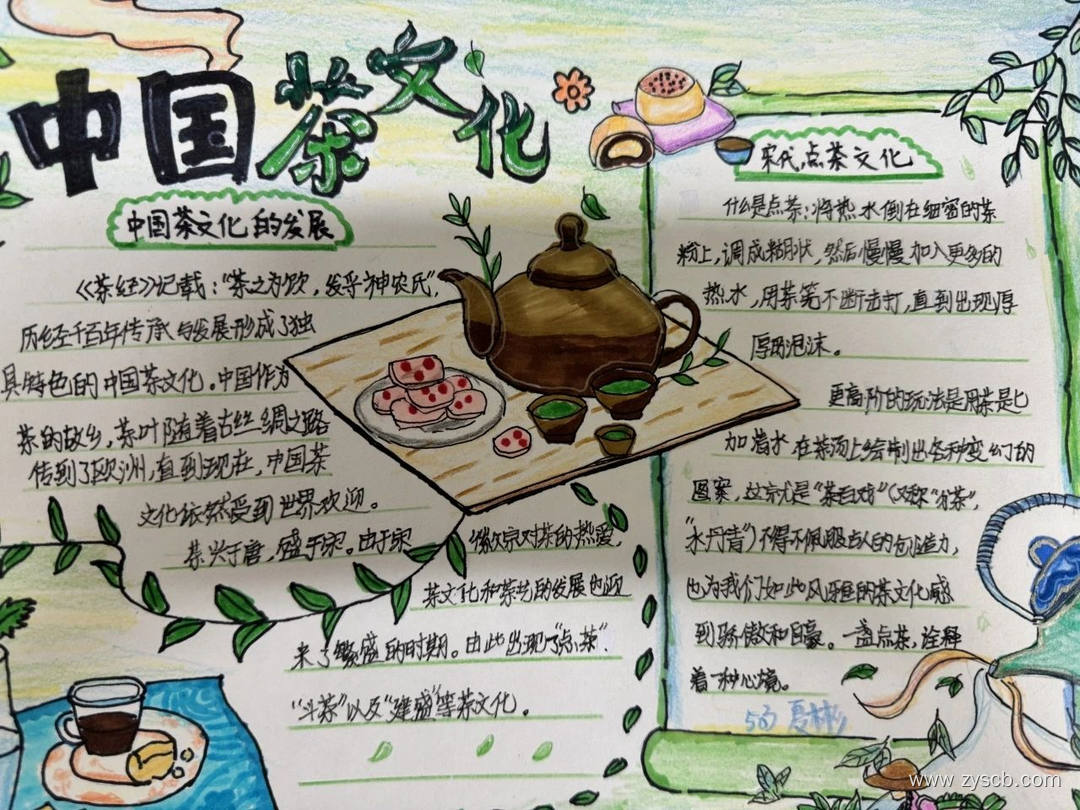 中国茶文化
中国茶文化的发展
《茶经》记载：“茶之为饮，发乎神农氏”，
历经千百年传承与发展形成了独
具特色的中国茶文化。中国作为
茶的故乡，茶叶随着古丝绸之路
传到了欧洲，直到现在，中国茶
文化依然受到世界欢迎。
茶兴于唐，盛于宋。由于宋
徽宗对茶的热爱，
茶文化和茶艺的发展也迎
来了繁盛的时期。由此出现了“点茶”
“斗茶”以及“建盏”等茶文化。
宋代点茶文化
什么是点茶：将热水倒在细密的茶
粉上，调成糊状，然后慢慢加入更多的
热水，用茶筅不断击打，直到出现厚
厚的泡沫。
更高阶的玩法是用茶匕
加清水在茶汤上绘制出各种变幻的
图案，这就是“茶百戏”（又称“分茶”，
“水丹青”）不得不佩服古人的创造力，
也为我们如此风雅的茶文化感
到骄傲和自豪。一盏点茶，诠释
着一种心境。
503 夏彬
www.zyscb.com